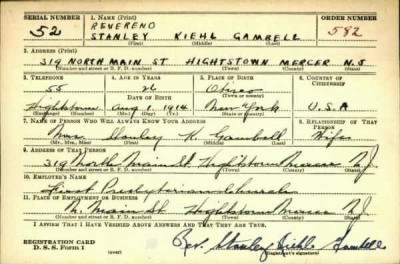 SERIAL NUMBER 1. NAME (Print) ORDER NUMBER
REVEREND
52 STANLEY KIEHL GAMBELL 582
(First) (Middle) (Last)
2. ADDRESS (Print)
319 NORTH MAIN ST HIGHTSTOWN MERCER N.J
(Number and street or R. F. D. number) (Town) (County) (State)
3. TELEPHONE 4. AGE IN YEARS 5. PLACE OF BIRTH 6. COUNTRY OF CITIZENSHIP
55 26
(Town or county)
DATE OF BIRTH
Hightstown Aug 1 1914 New York U.S.A
(Exchange) (Number) (Mo.) (Day) (Yr.) (State or country)
7. NAME OF PERSON WHO WILL ALWAYS KNOW YOUR ADDRESS 8. RELATIONSHIP OF THAT PERSON
Mrs. Stanley K. Gambell Wife
(Mr., Mrs., Miss) (First) (Middle) (Last)
9. ADDRESS OF THAT PERSON
319 North Main St. Hightstown Mercer N.J.
(Number and street or R. F. D. number) (Town) (County) (State)
10. EMPLOYER'S NAME
First Presbyterian Church
11. PLACE OF EMPLOYMENT OR BUSINESS
N. Main St Hightstown Mercer N.J.
(Number and street or R. F. D. number) (Town) (County) (State)
I AFFIRM THAT I HAVE VERIFIED ABOVE ANSWERS AND THAT THEY ARE TRUE.
REGISTRATION CARD
D. S. S. Form 1 (over) Rev. Stanley Kiehl Gambell
(Registrant's signature)